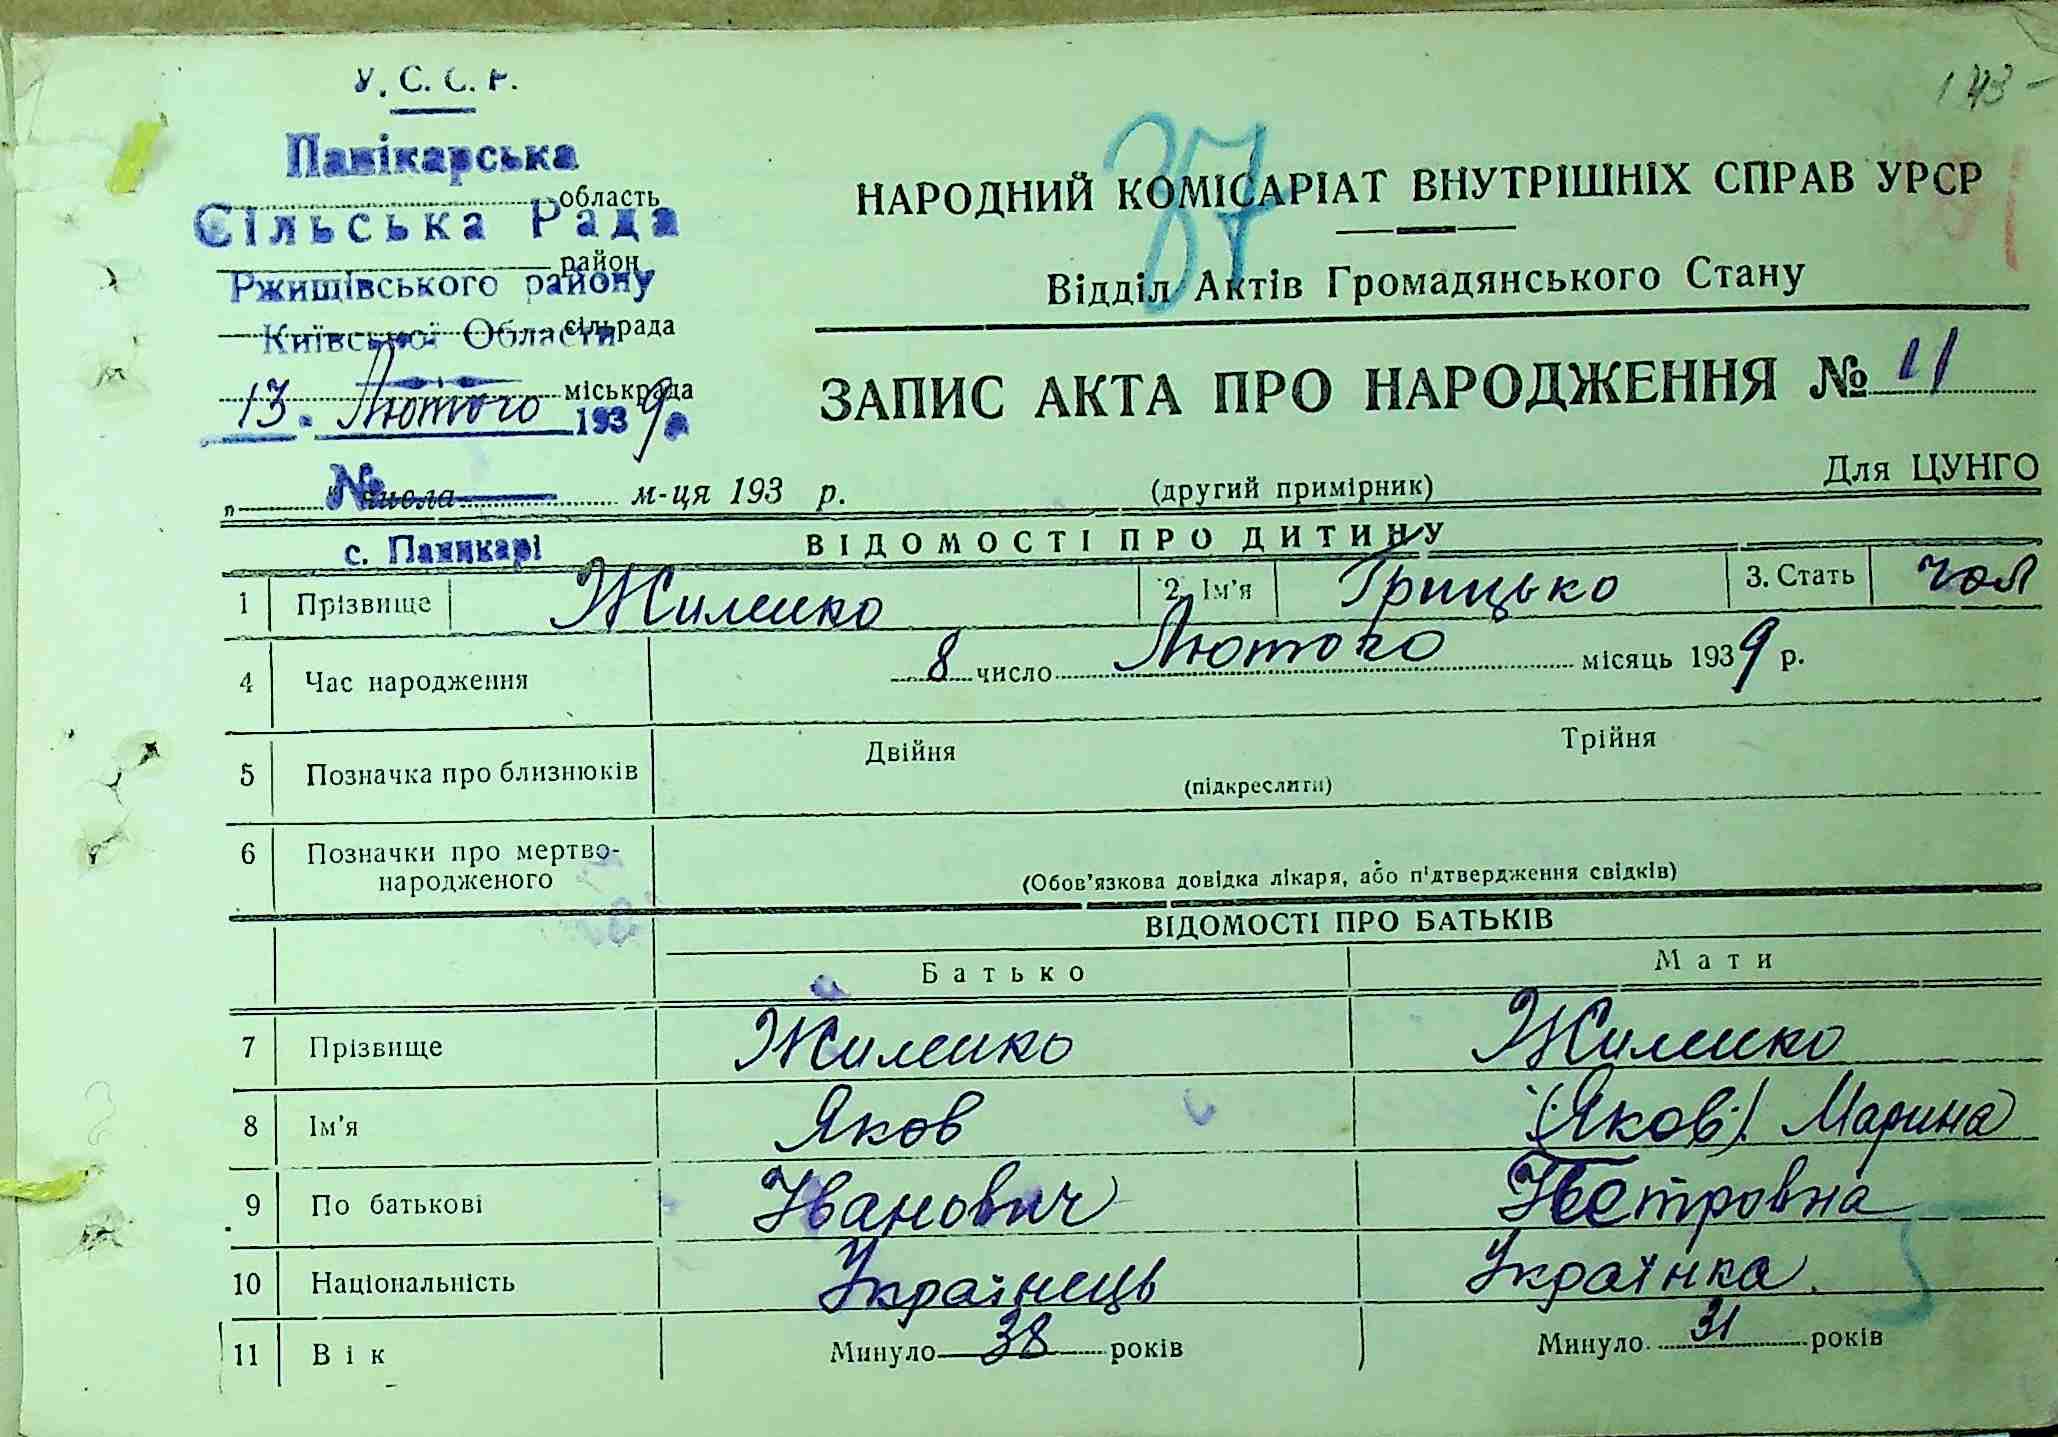 У. С. С. Р.
Панікарська
область
Сільська Рада
район
Ржищівського району
Київської Области
сільрада
міськрада
13. Лютого 1939 р.
№
„ числа м-ця 193 р.
с. Паникарі
143
37
НАРОДНИЙ КОМІСАРІАТ ВНУТРІШНІХ СПРАВ УРСР
Відділ Актів Громадянського Стану
ЗАПИС АКТА ПРО НАРОДЖЕННЯ № 11
(другий примірник) Для ЦУНГО
ВІДОМОСТІ ПРО ДИТИНУ
1 Прізвище Жиленко 2. Ім'я Грицько 3. Стать чол
4 Час народження 8 число Лютого місяць 1939 р.
5 Позначка про близнюків Двійня Трійня
(підкреслити)
6 Позначки про мертво-
народженого (Обов'язкова довідка лікаря, або підтвердження свідків)
ВІДОМОСТІ ПРО БАТЬКІВ
Батько Мати
7 Прізвище Жиленко Жиленко
8 Ім'я Яков (Яков) Марина
9 По батькові Іванович Петровна
10 Національність Українець Українка
11 Вік Минуло 38 років Минуло 31 років